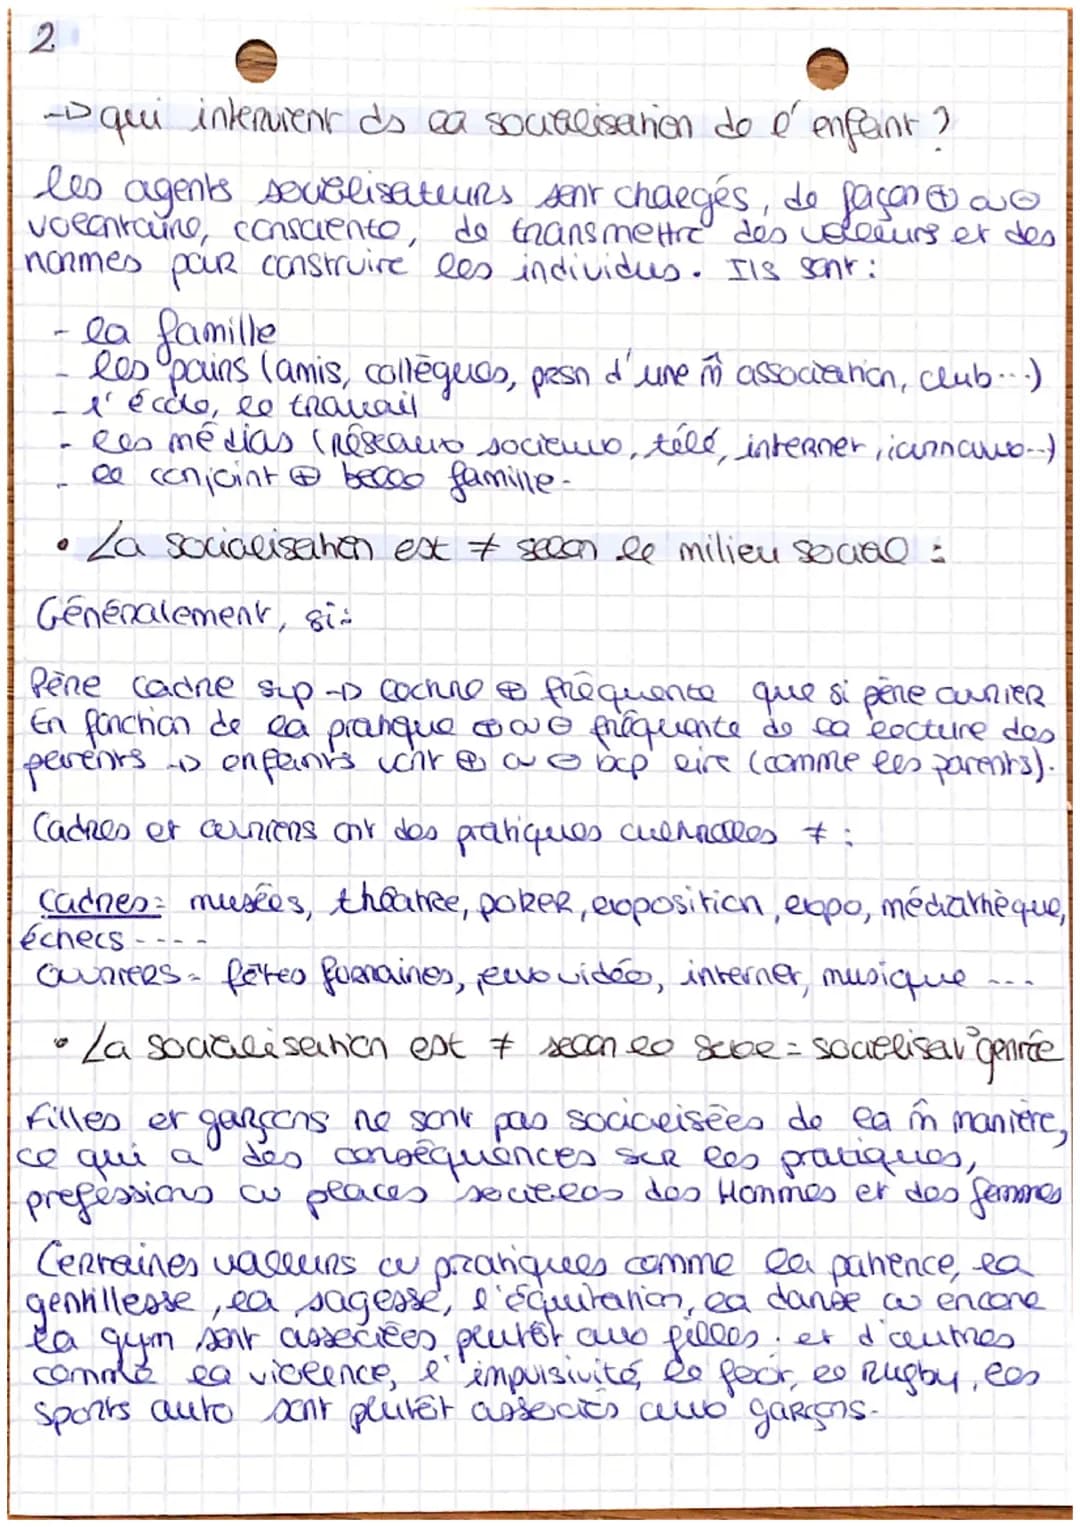 2
→ qui intervient ds la socialisation de l'enfant ?
les agents socialisateurs sont chargés, de façon ⊕ ou ⊖
volontaire, consciente, de transmettre des valeurs et des
normes pour construire les individus. Ils sont :
- la famille
- les pairs (amis, collègues, prsn d'une m̂ association, club...)
- l'école, le travail
- les médias (réseaux sociaux, télé, internet, journaux...)
- le conjoint ⊕ belle famille.
• La socialisation est ≠ selon le milieu social :
Généralement, si :
Père cadre sup → lecture ⊕ fréquente que si père ouvrier
En fonction de la pratique ⊕ ou ⊖ fréquente de la lecture des
parents → enfants vont ⊕ ou ⊖ bcp lire (comme les parents).
Cadres et ouvriers ont des pratiques culturelles ≠ :
Cadres : musées, théatre, poker, exposition, expo, médiathèque,
échecs ----
Ouvriers = fêtes foraines, jeux vidéo, internet, musique ---
• La socialisation est ≠ selon le sexe = socialisat° genrée
Filles et garçons ne sont pas socialisées de la m̂ manière,
ce qui a des conséquences sur les pratiques,
professions ou places sociales des Hommes et des femmes
Certaines valeurs ou pratiques comme la patience, la
gentillesse, la sagesse, l'équitation, la danse ou encore
la gym sont associées plutôt aux filles. et d'autres
comme la violence, l'impulsivité, le foot, le rugby, les
sports auto sont plutôt associés aux garçons.